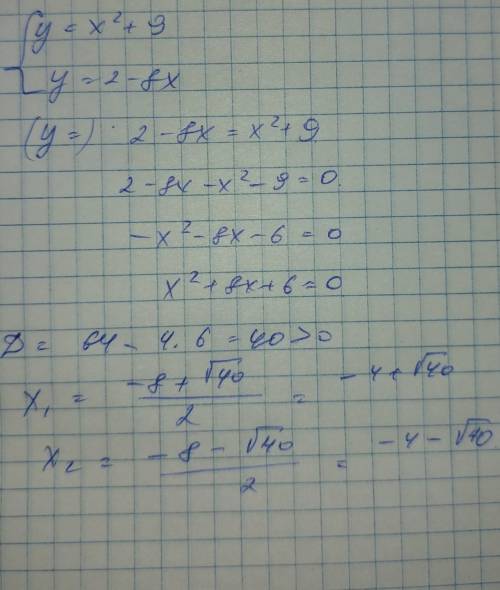 { y = x² + 9
y = 2 - 8x
(y =) 2 - 8x = x² + 9
2 - 8x - x² - 9 = 0.
-x² - 8x - 6 = 0
x² + 8x + 6 = 0
D = 64 - 4 · 6 = 40 > 0
x₁ = (-8 + √40)/2 = -4 + √40
x₂ = (-8 - √40)/2 = -4 - √40